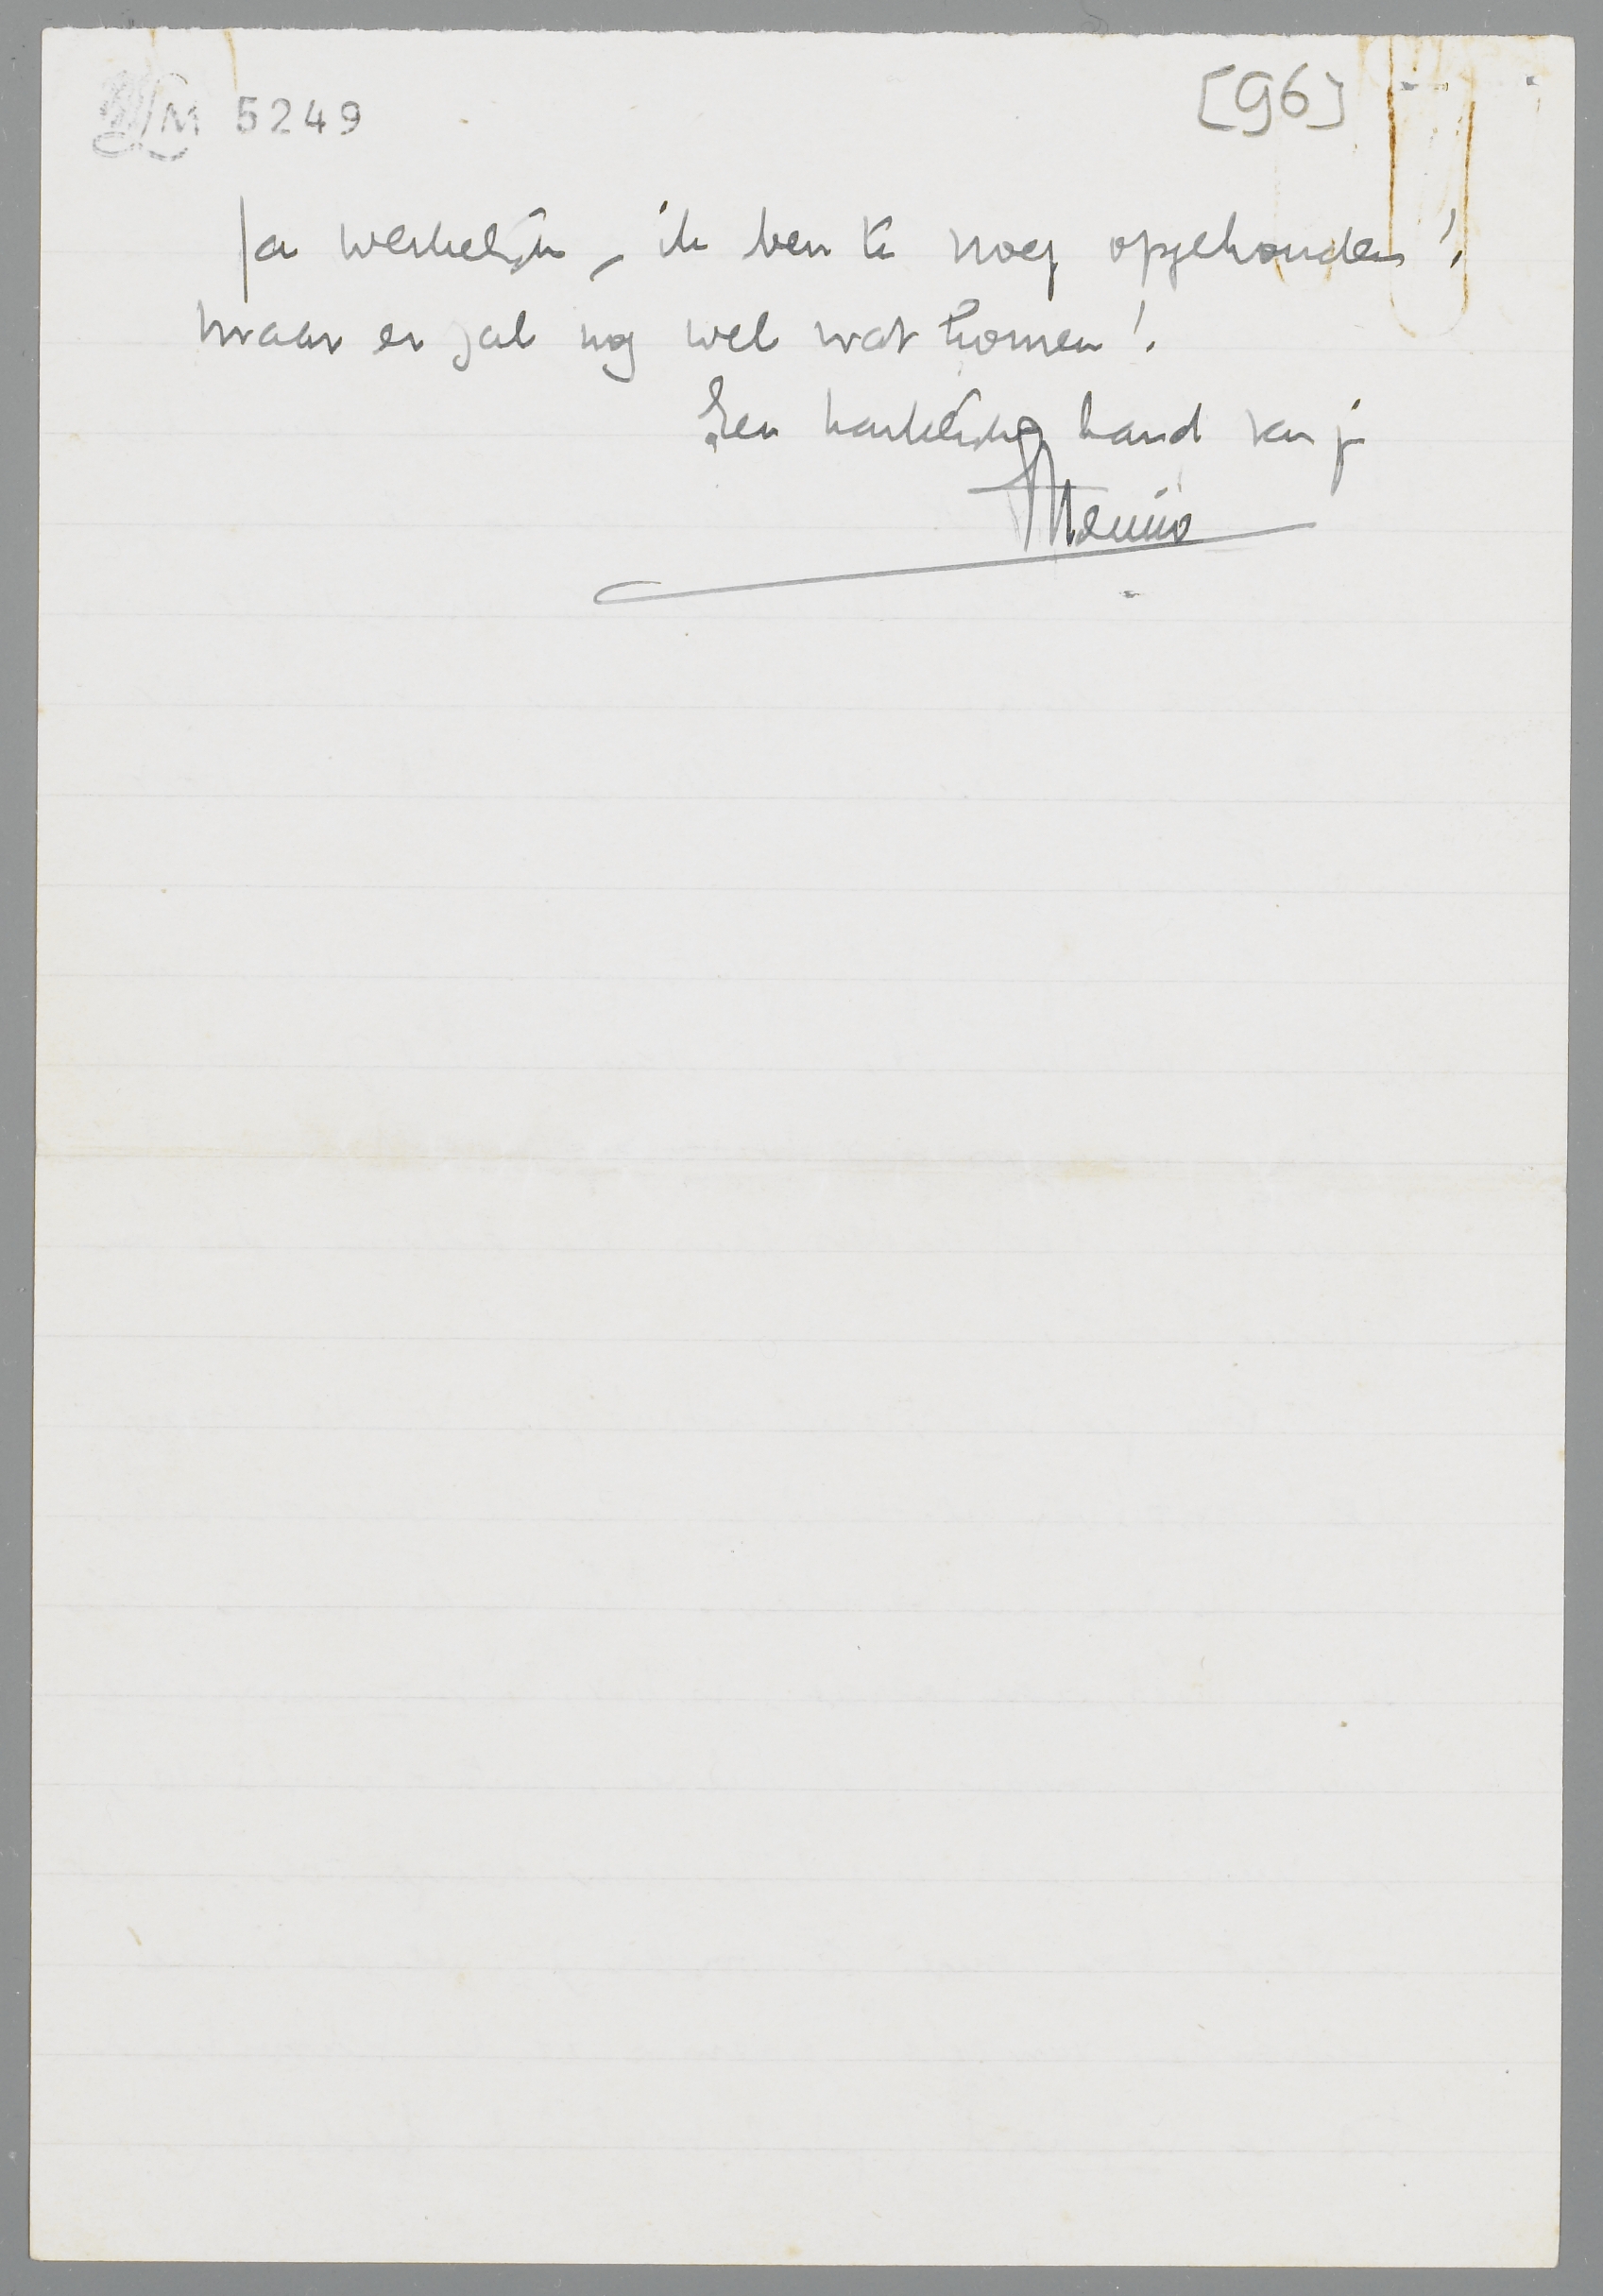 LM 5249
[96]
Ja werkelijk, ik ben te vroeg opgehouden!
maar er zal nog wel wat komen!
Een hartelijke hand van je
Menno